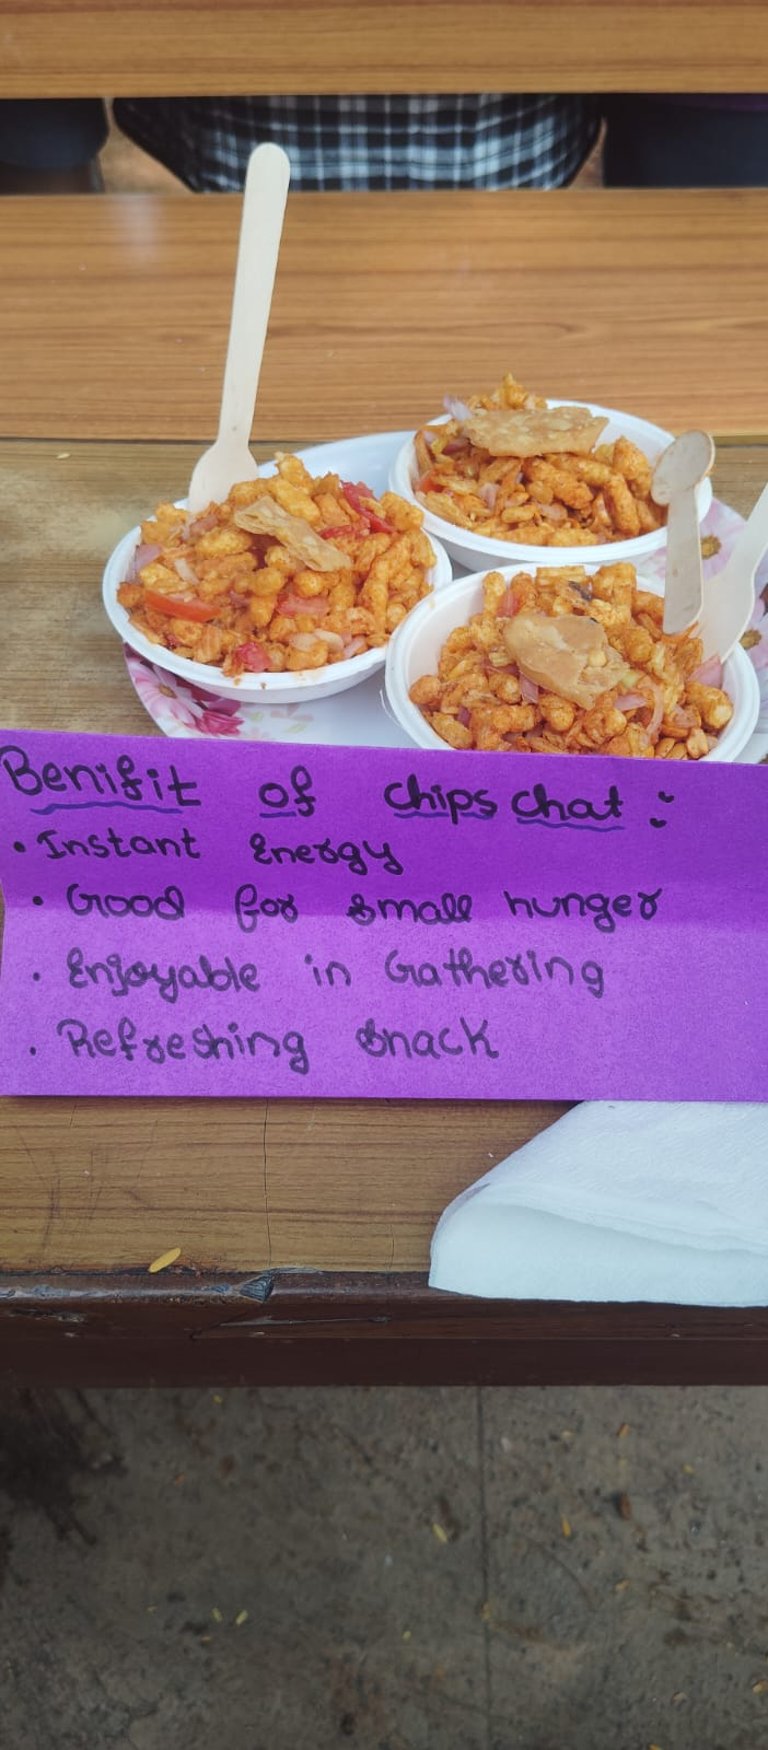 Benifit of chips chat :-
• Instant Energy
• Good for small hunger
• Enjoyable in Gathering
• Refreshing Snack